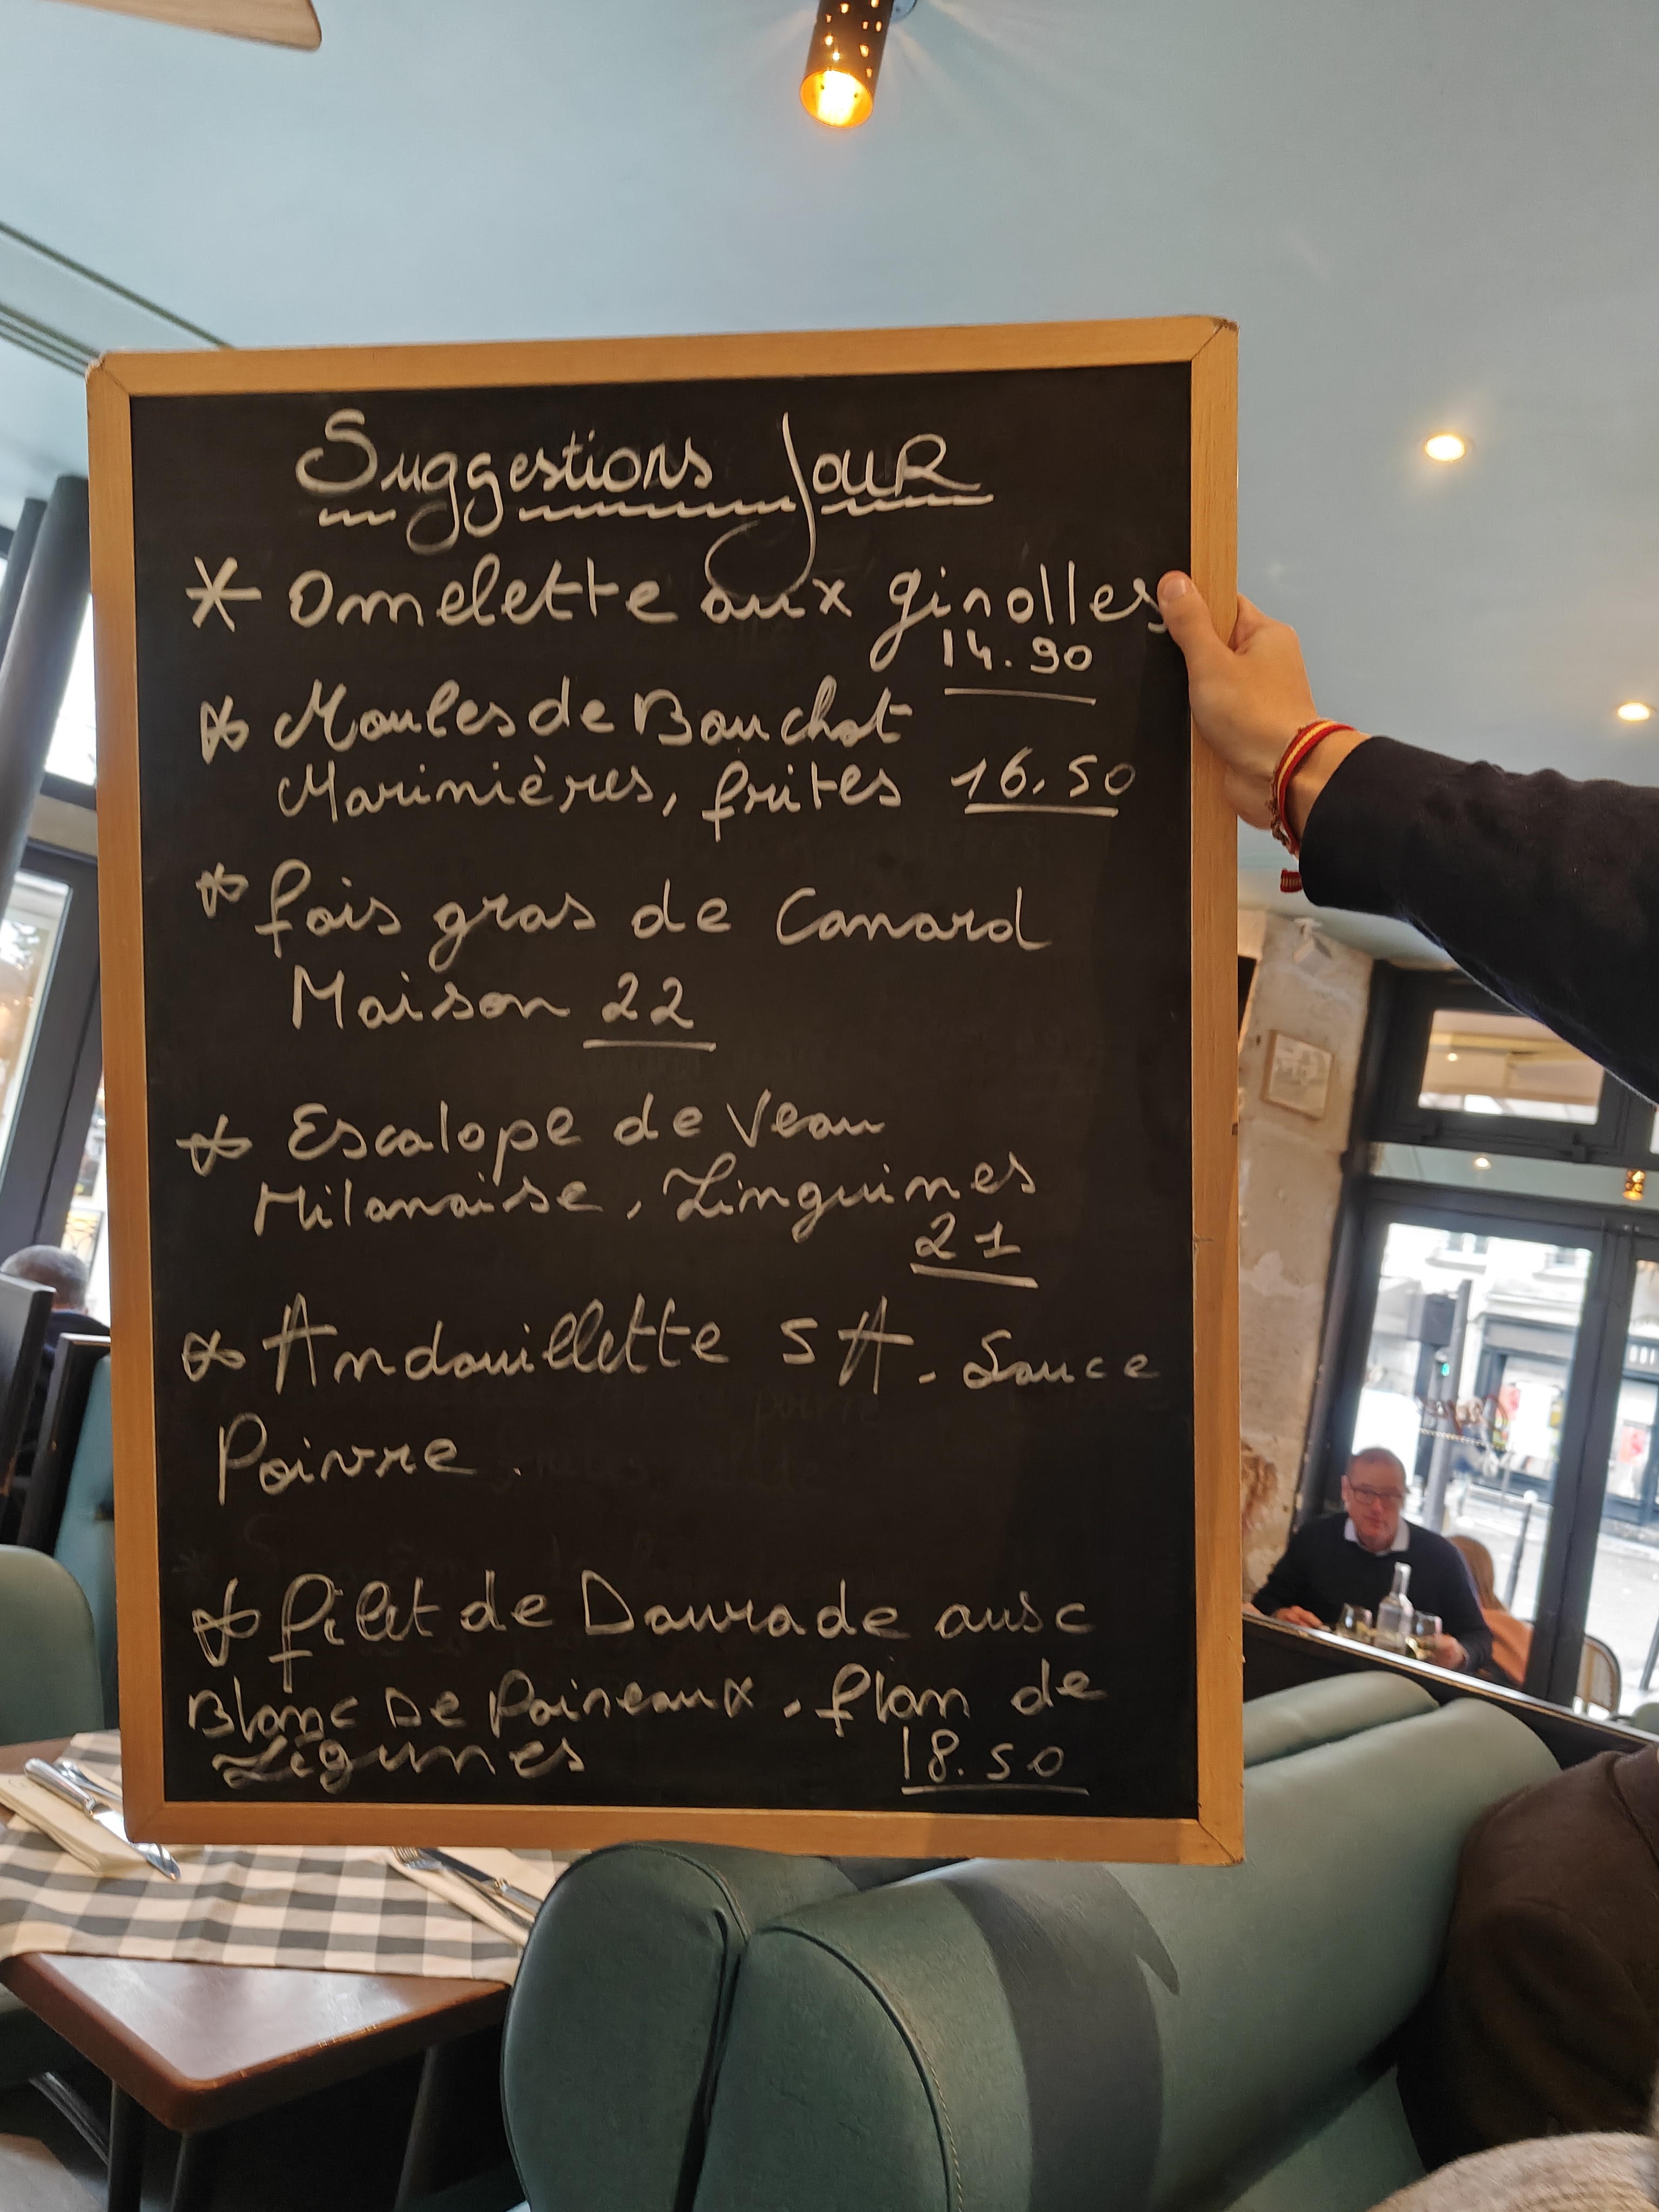 Suggestions Jour
* Omelette aux girolles
14.90
* Moules de Bouchot
Marinières, frites 16.50
* fois gras de Canard
Maison 22
* Escalope de Veau
Milanaise, Linguines
21
* Andouillette 5A. Sauce
Poivre.
* filet de Daurade ausc
Blanc De Poireaux. flan de
Légumes 18.50